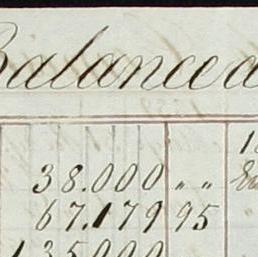 Balanced
38.000 " "
67.179 95
135.000